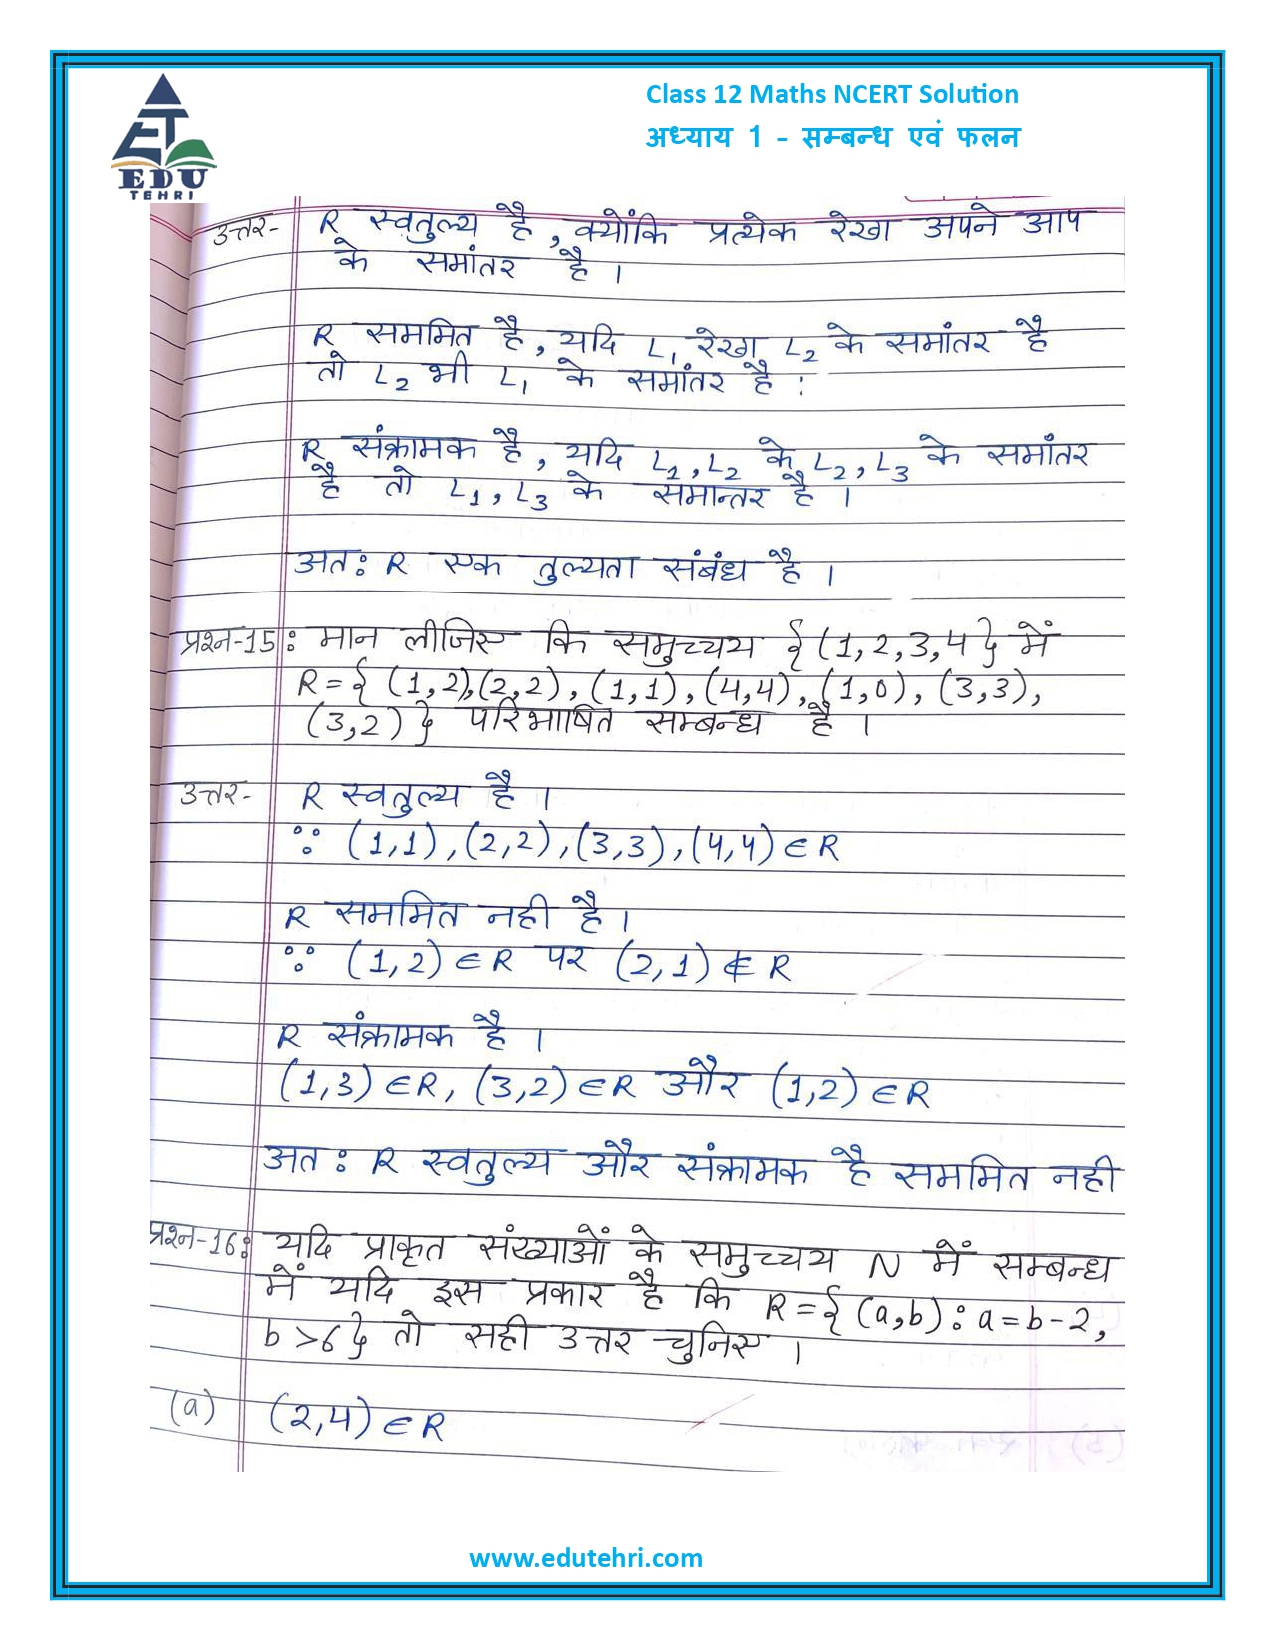 EDU
TEHRI
Class 12 Maths NCERT Solution
अध्याय 1 - सम्बन्ध एवं फलन
उत्तर- R स्वतुल्य है, क्योंकि प्रत्येक रेखा अपने आप
के समांतर है ।
R सममित है, यदि L₁ रेखा L₂ के समांतर है
तो L₂ भी L₁ के समांतर है :
R संक्रामक है, यदि L₁, L₂ के, L₂, L₃ के समांतर
है तो L₁, L₃ के समान्तर है ।
अत: R एक तुल्यता संबंध है ।
प्रश्न-15: मान लीजिए कि समुच्चय {(1,2,3,4} में
R={(1,2),(2,2),(1,1),(4,4),(1,0),(3,3),
(3,2)} परिभाषित सम्बन्ध है ।
उत्तर- R स्वतुल्य है ।
∵ (1,1),(2,2),(3,3),(4,4)∈R
R सममित नही है ।
∵ (1,2)∈R पर (2,1)∉R
R संक्रामक है ।
(1,3)∈R, (3,2)∈R और (1,2)∈R
अत: R स्वतुल्य और संक्रामक है सममित नही
प्रश्न-16: यदि प्राकृत संख्याओं के समुच्चय N में सम्बन्ध
में यदि इस प्रकार है कि R={(a,b):a=b-2,
b>6} तो सही उत्तर चुनिए ।
(a) (2,4)∈R
www.edutehri.com